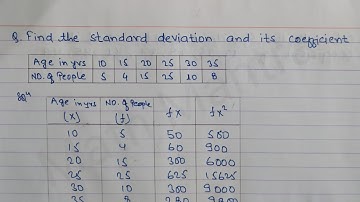 Q. Find the standard deviation and its coefficient
Age in yrs 10 15 20 25 30 35
NO. of People 5 4 15 25 10 8
Solⁿ
Age in yrs NO. of People fx fx²
(x) (f)
10 5 50 500
15 4 60 900
20 15 300 6000
25 25 625 15625
30 10 300 9000
35 8 280 9800